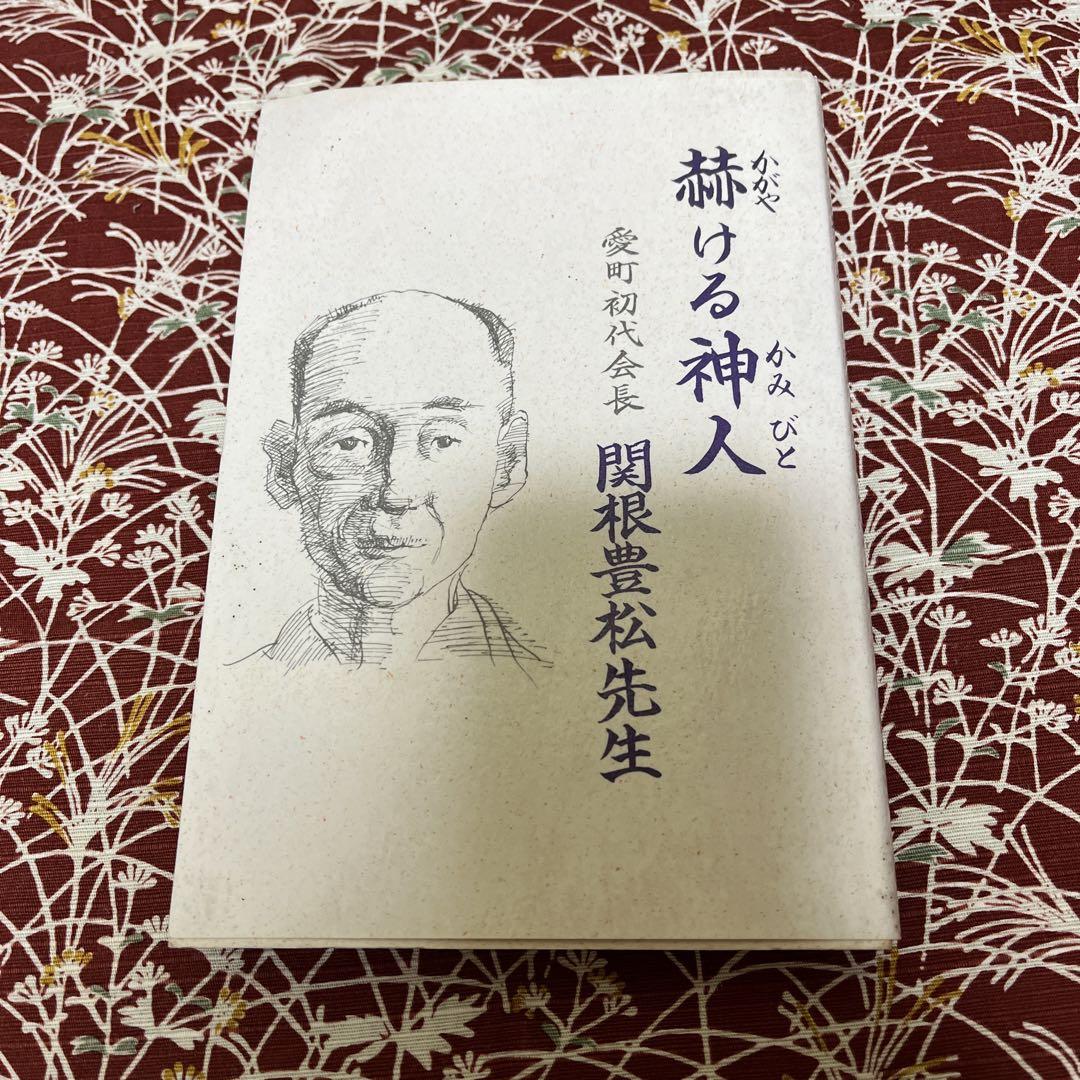 赫ける神人
かがや
かみびと
愛町初代会長
関根豊松先生